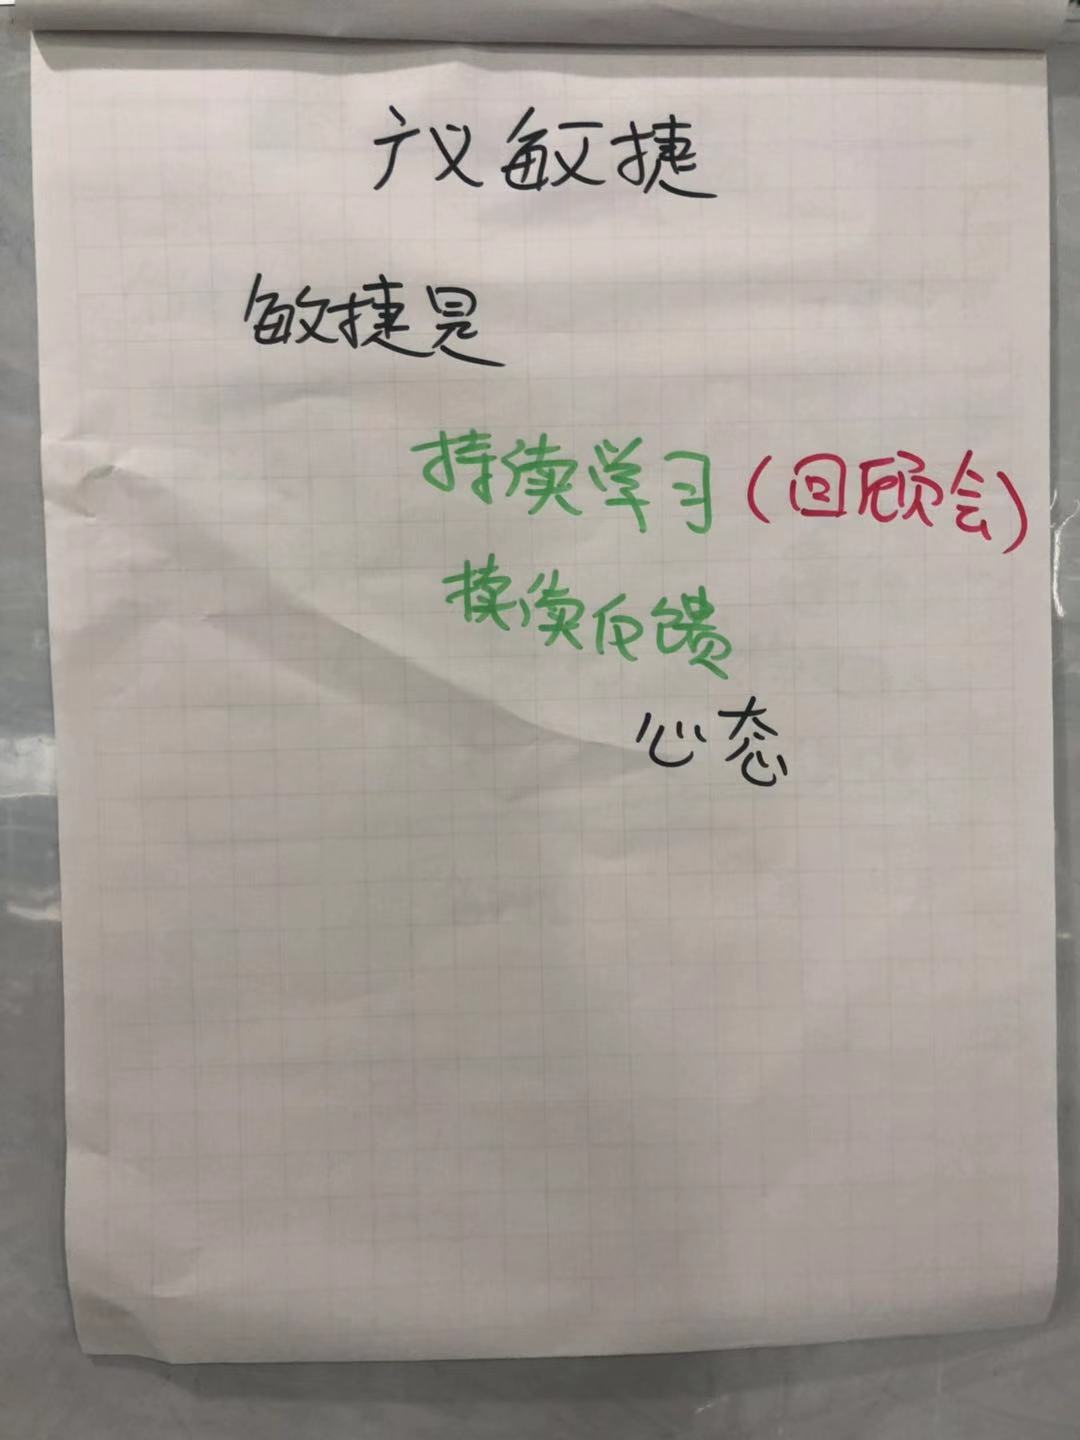 广义敏捷
敏捷是
持续学习(回顾会)
持续反馈
心态